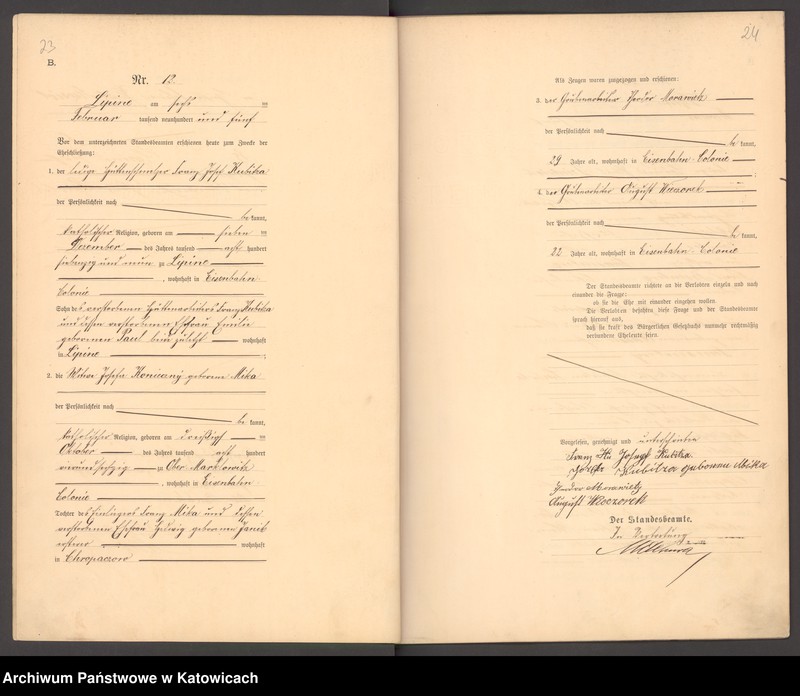 23
B.
Nr. 12.
Lipine am sechs ten
Februar tausend neunhundert und fünf
Vor dem unterzeichneten Standesbeamten erschienen heute zum Zweck der
Eheschließung:
1. der ledige Franz Josef Kubitza
der Persönlichkeit nach
be kannt,
katholischer Religion, geboren am sieben ten
Dezember des Jahres tausend acht hundert
siebenzig und neun zu Lipine
, wohnhaft in Eisenbahn
Colonie
Sohn des verstorbenen Hüttenarbeiters Franz Kubitza
und dessen verstorbenen Ehefrau Emilie
geborenen Paul beide zuletzt wohnhaft
in Lipine ;
2. die Witwe Josefa geborene Mika
der Persönlichkeit nach
be kannt,
katholischer Religion, geboren am dreißigs ten
Oktober des Jahres tausend acht hundert
vierundsechszig zu Ober Marklowitz
, wohnhaft in Eisenbahn
Colonie
Tochter des Franz Mika und dessen
verstorbenen Ehefrau Hedwig geborenen
ersterer wohnhaft
in Chropaczow
24
Als Zeugen waren zugezogen und erschienen:
3. der Grubenarbeiter Theodor Morawietz
der Persönlichkeit nach
be kannt,
29 Jahre alt, wohnhaft in Eisenbahn-Colonie
;
4. der Grubenarbeiter August Wieczorek
der Persönlichkeit nach
be kannt,
22 Jahre alt, wohnhaft in Eisenbahn-Colonie
Der Standesbeamte richtete an die Verlobten einzeln und nach
einander die Frage:
ob sie die Ehe mit einander eingehen wollen.
Die Verlobten bejahten diese Frage und der Standesbeamte
sprach hierauf aus,
daß sie kraft des Bürgerlichen Gesetzbuchs nunmehr rechtmäßig
verbundene Eheleute seien.
Vorgelesen, genehmigt und unterschrieben
Franz Ku Josef Kubitza
Josefa Kubitza geborene Mika
Theodor Morawietz
August Wieczorek
Der Standesbeamte.
In Vertretung
Archiwum Państwowe w Katowicach